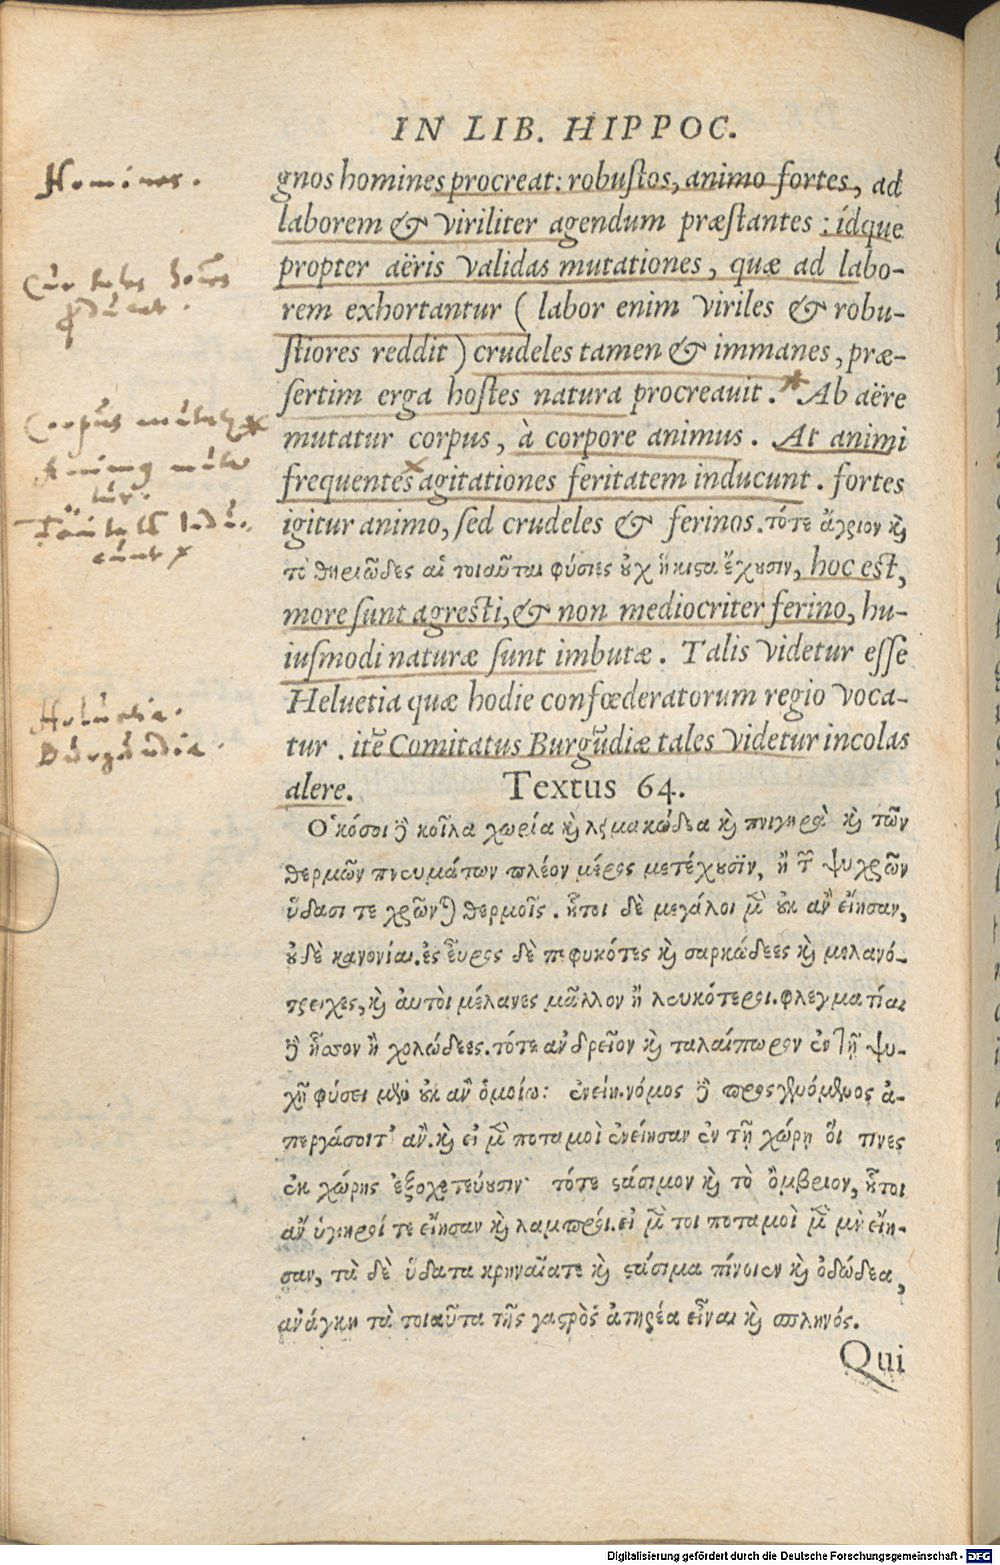 IN LIB. HIPPOC.
Homines.
gnos homines procreat: robustos, animo fortes, ad
laborem & viriliter agendum præstantes: idque
Cur tales hoīes
propter aëris validas mutationes, quæ ad labo-
rem exhortantur (labor enim viriles & robu-
stiores reddit) crudeles tamen & immanes, præ-
sertim erga hostes natura procreauit.* Ab aëre
Corpus
mutatur corpus, à corpore animus. At animi
frequentes agitationes feritatem inducunt. fortes
igitur animo, sed crudeles & ferinos. τότε ἄγριον κὶ
τὸ θηριῶδες αἱ τοιαῦται φύσιες οὐχ ἥκιστα ἔχουσιν, hoc est,
more sunt agresti, & non mediocriter ferino, hu-
iusmodi naturæ sunt imbutæ. Talis videtur esse
Heluetia.
Helvetia quæ hodie confœderatorum regio voca-
Burgundia.
tur. itē Comitatus Burgūdiæ tales videtur incolas
alere. Textus 64.
Ὁκόσοι δὲ κοῖλα χωρία κὶ λειμακώδεα κὶ πνιγηρὰ κὶ τῶν
θερμῶν πνευμάτων πλέον μέρος μετέχουσιν, ἢ τῶν ψυχρῶν
ὕδασί τε χρῶνται θερμοῖς. ἧτοι δὲ μεγάλοι μὲν οὐκ ἂν εἴησαν,
οὐδὲ κανονίαι. ἐς εὖρος δὲ πεφυκότες κὶ σαρκώδεες κὶ μελανό-
τριχες, κὶ αὐτοὶ μέλανες μᾶλλον ἢ λευκότεροι. φλεγματίαι
δὲ ἧσσον ἢ χολώδεες. τότε ἀνδρεῖον κὶ ταλαίπωρον ἐν τῇ ψυ-
χῇ φύσει μὲν οὐκ ἂν ὁμοίως ἐνείη. νόμος δὲ προσγενόμενος ἀ-
περγάσοιτ' ἂν. κὶ εἰ μὲν ποταμοὶ ἐνείησαν ἐν τῇ χώρῃ οἵ τινες
ἐκ χώρης ἐξοχετεύουσιν τότε στάσιμον κὶ τὸ ὄμβριον, ἧτοι
ἂν ὑγιηροί τε εἴησαν κὶ λαμπροί. εἰ μέν τοι ποταμοὶ μὲν μὴ εἴη-
σαν, τὰ δὲ ὕδατα κρηναῖά τε κὶ στάσιμα πίνοιεν κὶ ὀδώδεα,
ἀνάγκη τὰ τοιαῦτα τῆς γαστρὸς ἀτηρέα εἶναι κὶ σπληνός.
Qui
Digitalisierung gefördert durch die Deutsche Forschungsgemeinschaft - DFG